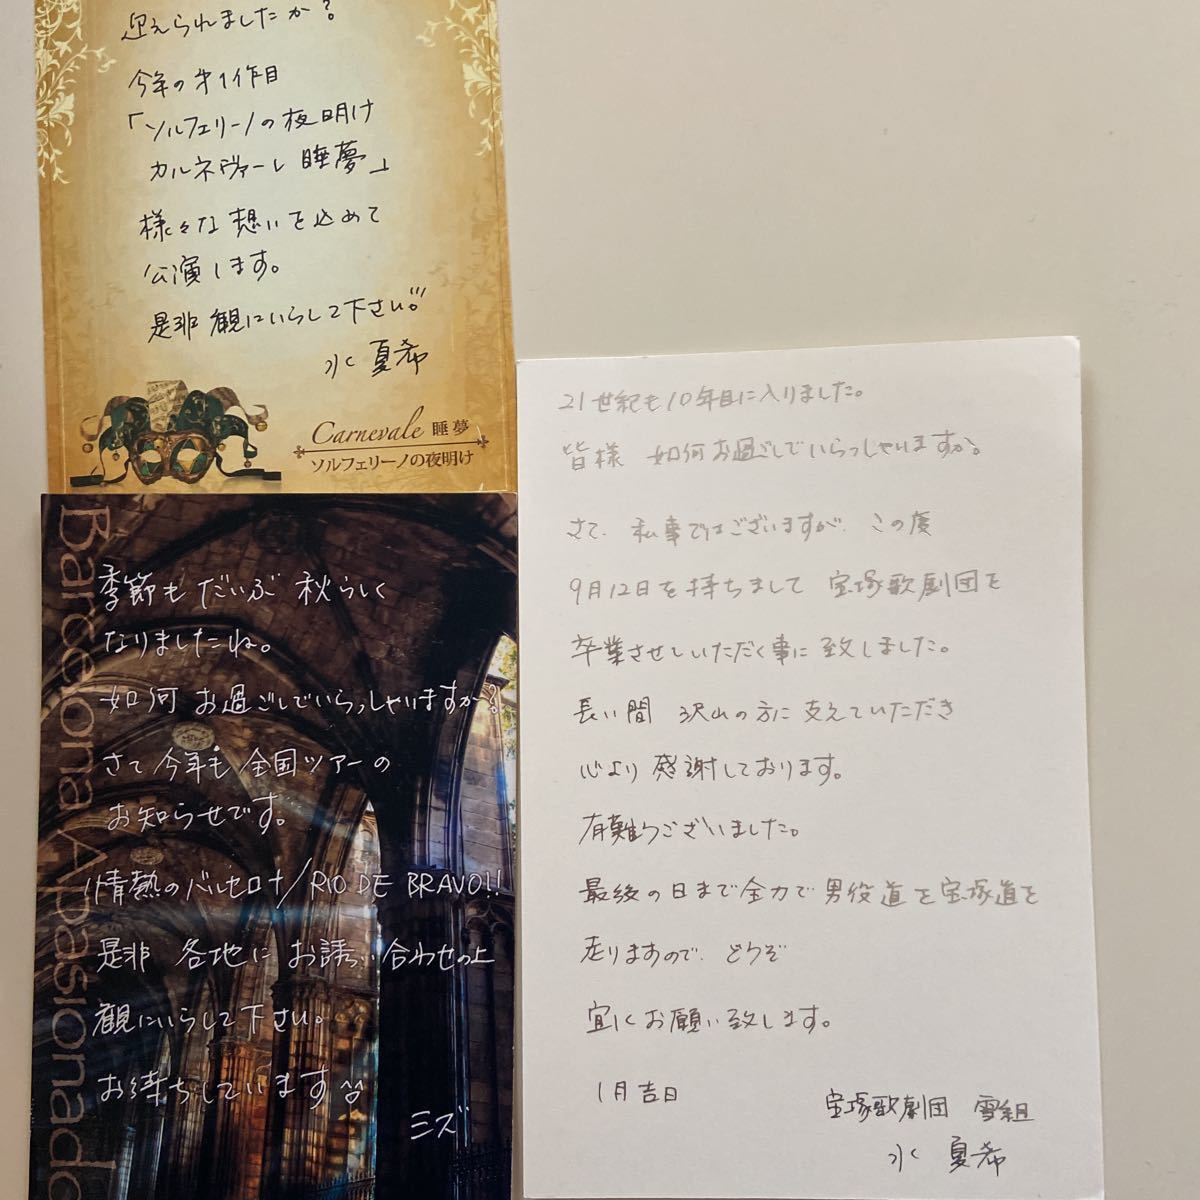 迎えられましたか?
今年の第1作目
「ソルフェリーノの夜明け
カルネヴァーレ 睡夢」
様々な想いを込めて
公演します。
是非 観にいらして下さい!!
水 夏希
Carnevale 睡夢
ソルフェリーノの夜明け
Barcelona Apasionado
季節も だいぶ 秋らしく
なりましたね。
如何 お過ごしでいらっしゃいますか?
さて 今年も 全国ツアーの
お知らせです。
情熱のバルセロナ/RIO DE BRAVO!!
是非 各地に お誘い合わせの上
観にいらして下さい。
お待ちしています^^
ミズ
21世紀も10年目に入りました。
皆様 如何お過ごしでいらっしゃいますか。
さて、私事ではございますが、この度
9月12日を持ちまして 宝塚歌劇団を
卒業させていただく事に致しました。
長い間 沢山の方に支えていただき
心より 感謝しております。
有難うございました。
最後の日まで全力で男役道を宝塚道を
走りますので、どうぞ
宜しくお願い致します。
1月吉日
宝塚歌劇団 雪組
水 夏希